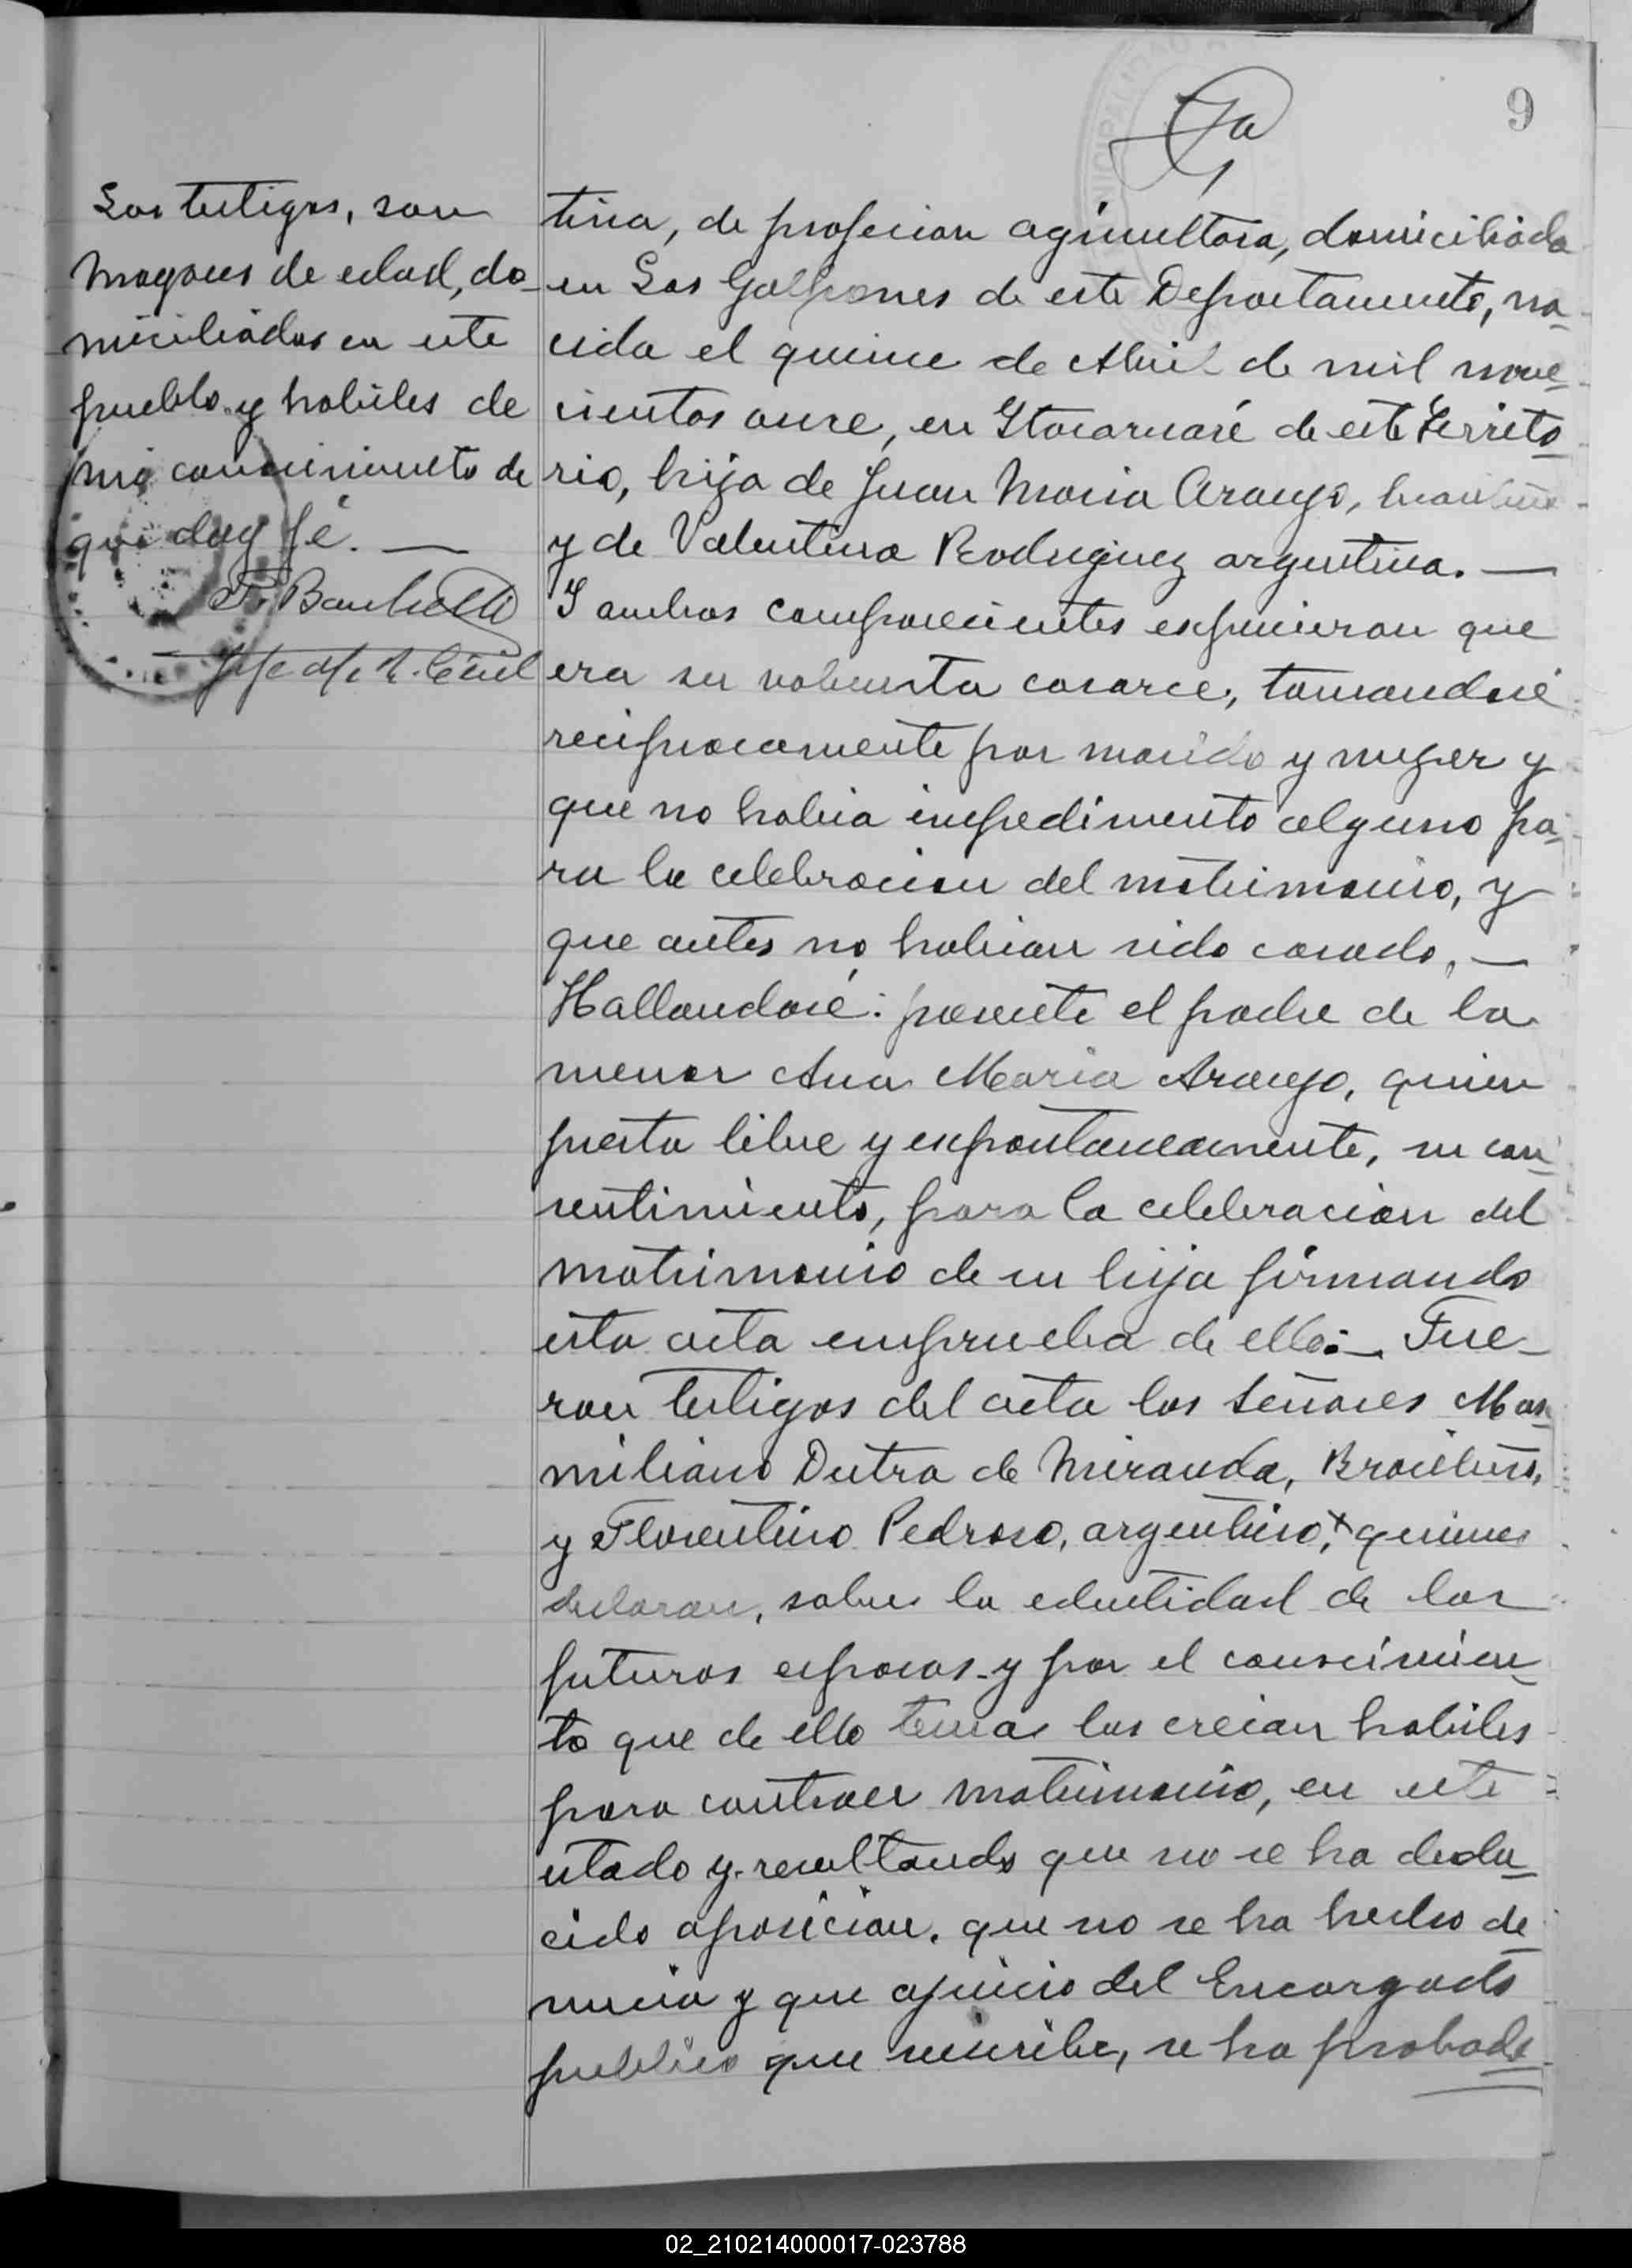 9
Los testigos, son
mayores de edad, do-
miciliados en este
pueblo y habiles de
mi conocimiento de
que doy fé. —
Jefe of. R. Civil
tina, de profecion agricultora, domiciliada
en Los Galpones de este Departamento, na-
cida el quince de Abril de mil nove-
cientos once, en Itacaruaré de este Territo-
rio, hija de Juan Maria Araujo, brasileño
y de Valentina Rodriguez argentina. —
Y ambos comparecientes expucieron que
era su volunta casarce, tomandosé
reciprocamente por marido y mujer y
que no habia impedimento alguno pa-
ra la celebracion del matrimonio, y
que antes no habian sido casado, —
Hallandosé: presente el padre de la
menor Ana Maria Araujo, quien
presta libre y expontaneamente, su con-
sentimiento, para la celebracion del
matrimonio de su hija firmando
esta acta emprueba de ello:— Fue-
ron testigos del acta los señores Mas-
miliano Dutra de Miranda, Brasileño,
y Florentino Pedroso, argentino,+ quienes
declaran, sobre la edentidad de los
futuros esposos y por el conocimien-
to que de ello tenian los creian habiles
para contraer matrimonio, en este
estado y resultando que no se ha dedu-
cido oposicion, que no se ha hecho de-
nuncia y que ajuicio del Encargado
publico que suscribe, se ha probado
02_210214000017-023788